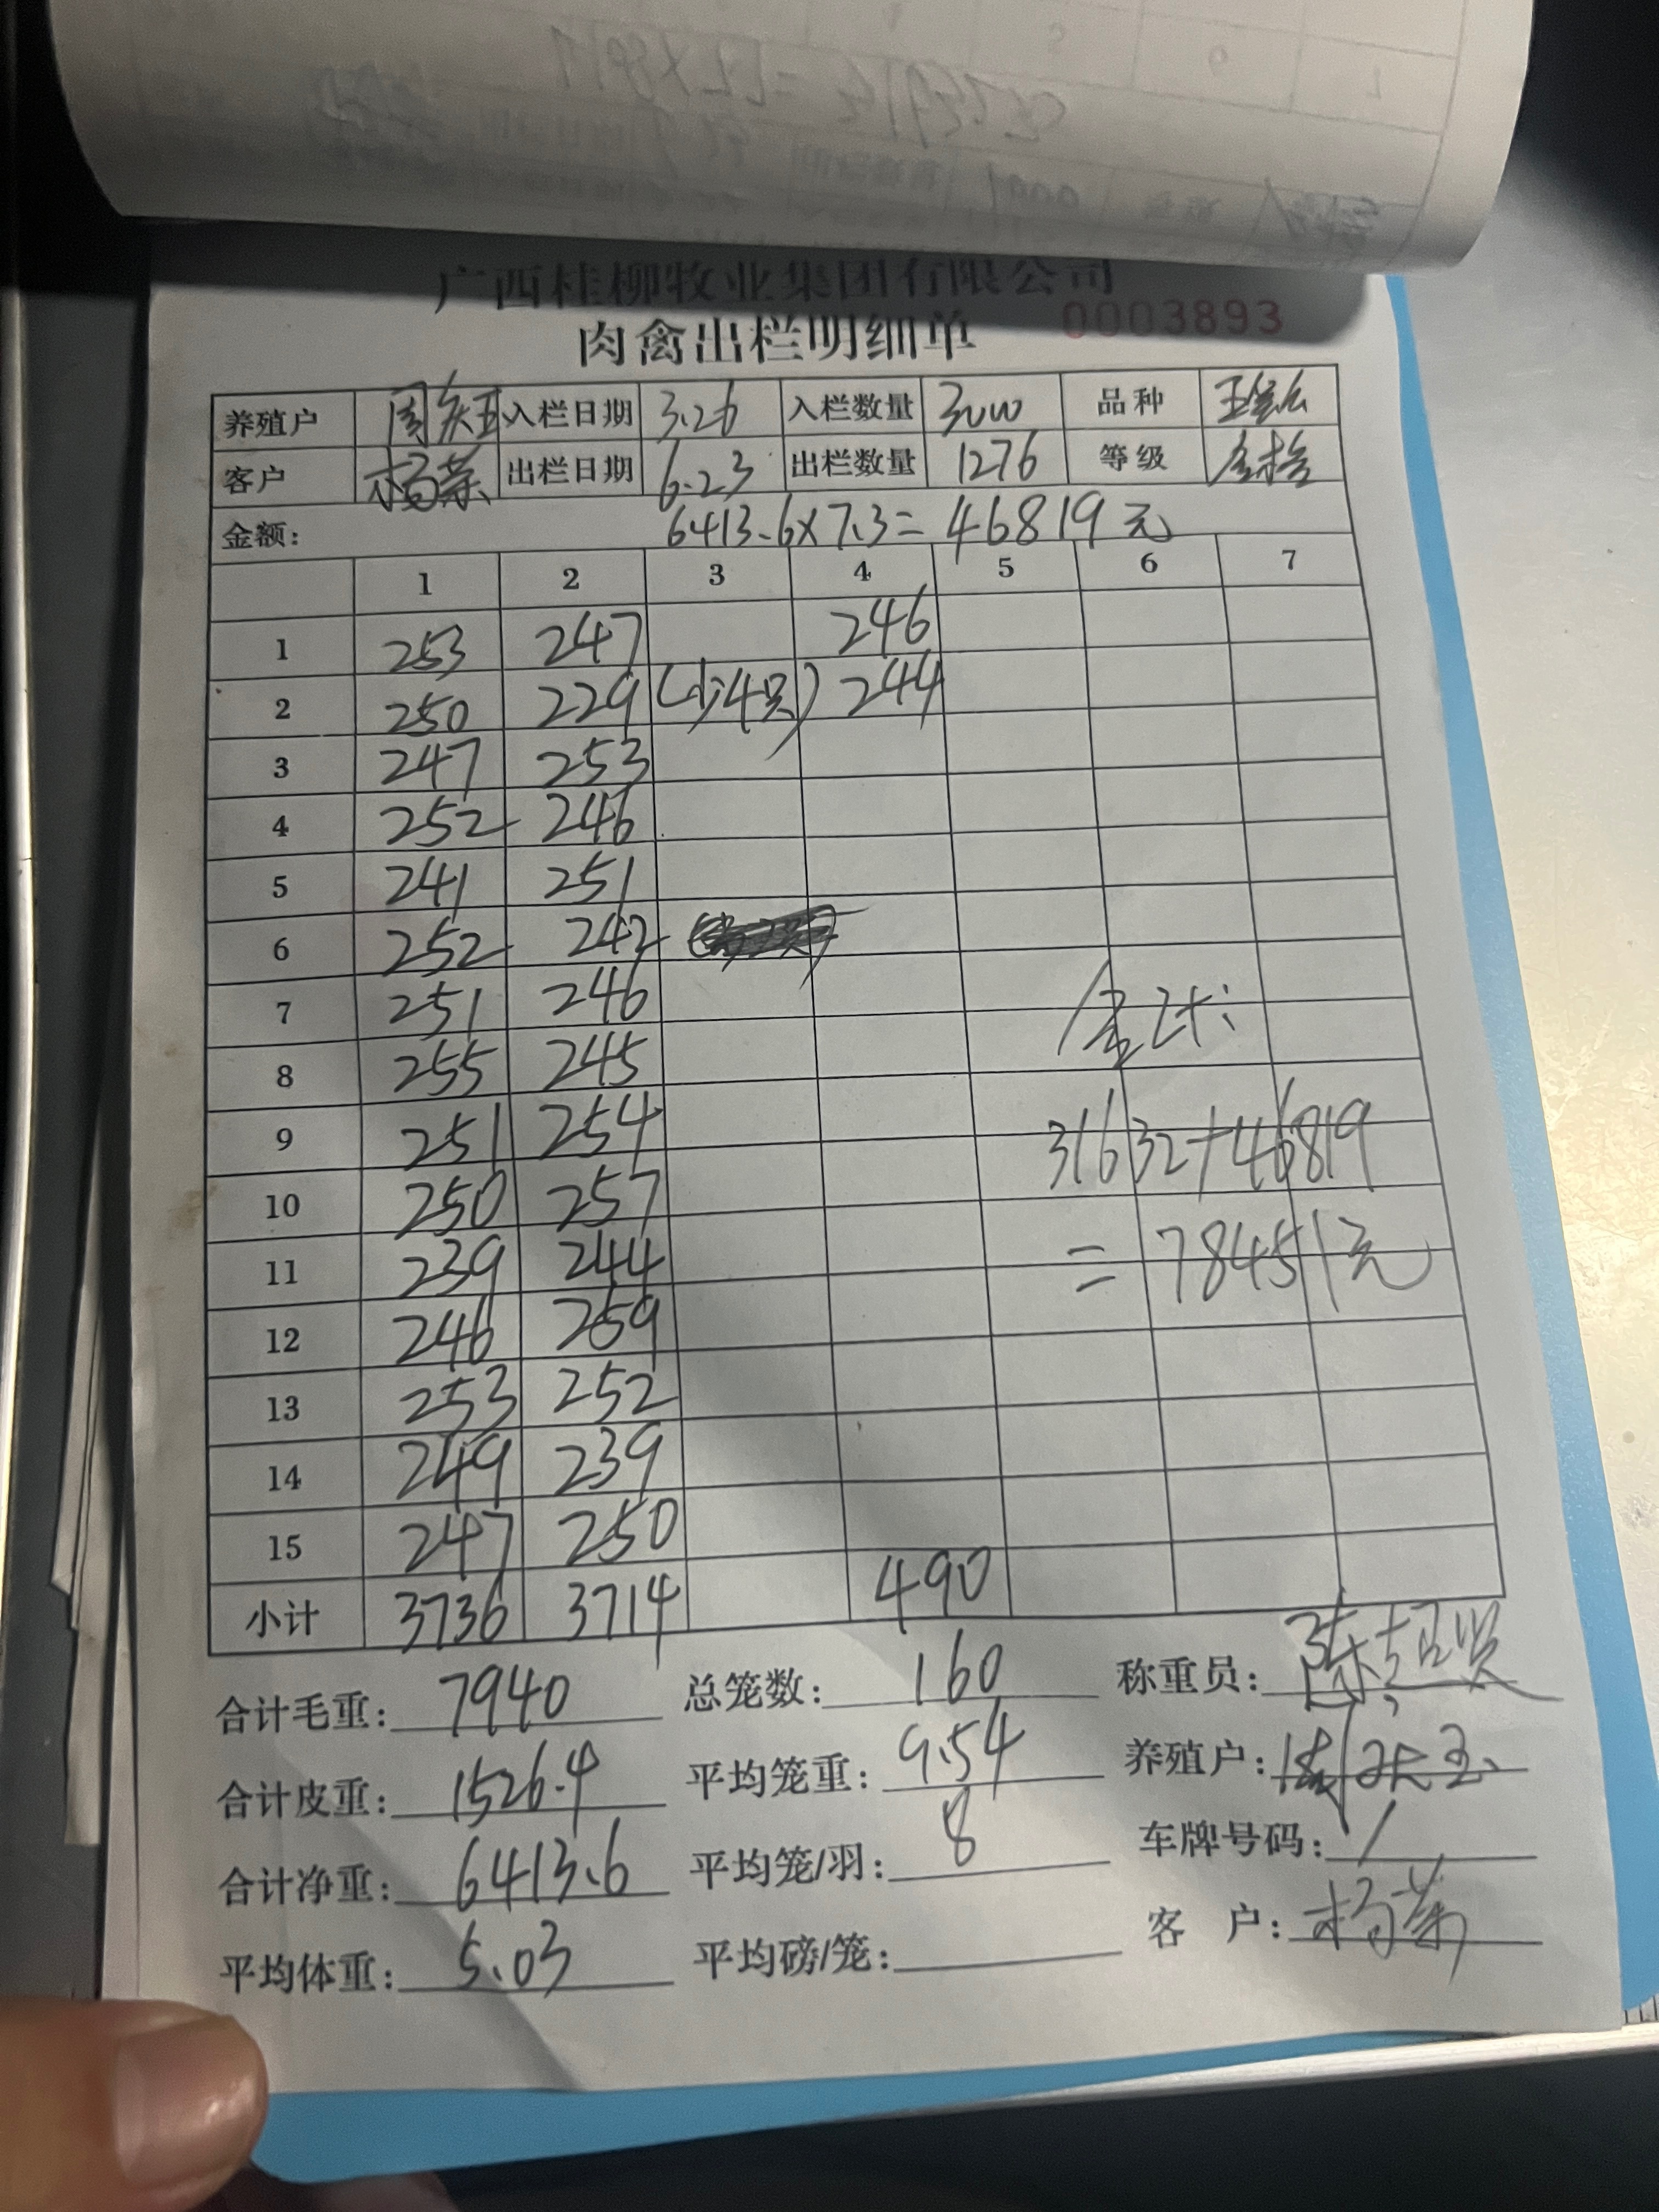 广西桂柳牧业集团有限公司
肉禽出栏明细单 0003893
养殖户 周庆玉 入栏日期 3.26 入栏数量 3000 品种
客户 杨荣 出栏日期 6.23 出栏数量 1276 等级 合格
金额： 6413.6×7.3=46819元
1 2 3 4 5 6 7
1 253 247 246
2 250 229 (少4只) 244
3 247 253
4 252 246
5 241 251
6 252 242
7 251 246
8 255 245
9 251 254
10 250 257
11 239 244
12 246 259
13 253 252
14 249 239
15 247 250
合计:
31632+46819
=78451元
小计 3736 3714 490
合计毛重： 7940 总笼数： 160 称重员：
合计皮重： 1526.4 平均笼重： 9.54 养殖户： 周庆玉
合计净重： 6413.6 平均笼/羽： 8 车牌号码： /
平均体重： 5.03 平均磅/笼： 客 户： 杨荣